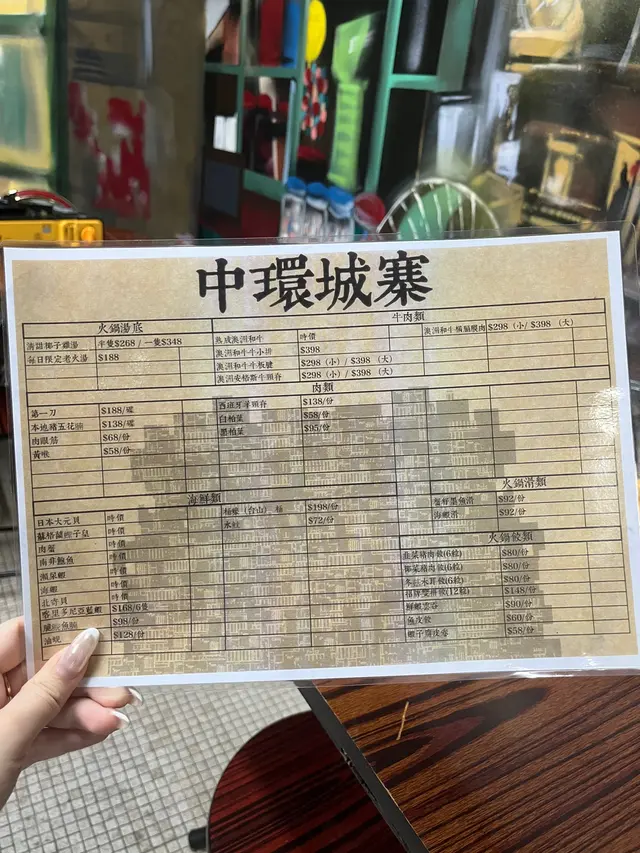 中環城寨
火鍋湯底
清甜椰子雞湯 半隻$268 / 一隻$348
每日限定老火湯 $188
牛肉類
熟成澳洲和牛 時價
澳洲和牛牛小排 $398
澳洲和牛牛板腱 $298 (小) / $398 (大)
澳洲安格斯牛頸脊 $298 (小) / $398 (大)
澳洲和牛 $298 (小) / $398 (大)
肉類
第一刀 $188/碟
本地豬五花腩 $138/碟
肉眼筋 $68/份
黃喉 $58/份
西班牙 $138/份
白柏葉 $58/份
黑柏葉 $95/份
海鮮類
日本大元貝 時價
蘇格蘭蟶子皇 時價
肉蟹 時價
南非鮑魚 時價
瀨尿蝦 時價
海蝦 時價
北寄貝 時價
喀里多尼亞藍蝦 $168/6隻
$98/份
油 $128/份
(台山) $198/份
$72/份
火鍋滑類
墨魚滑 $92/份
海蝦滑 $92/份
火鍋餃類
韭菜豬肉餃(6粒) $80/份
椰菜豬肉餃(6粒) $80/份
冬菇木耳餃(6粒) $80/份
招牌雙拼餃(12粒) $148/份
鮮蝦雲吞 $90/份
魚皮餃 $60/份
蝦子 $58/份